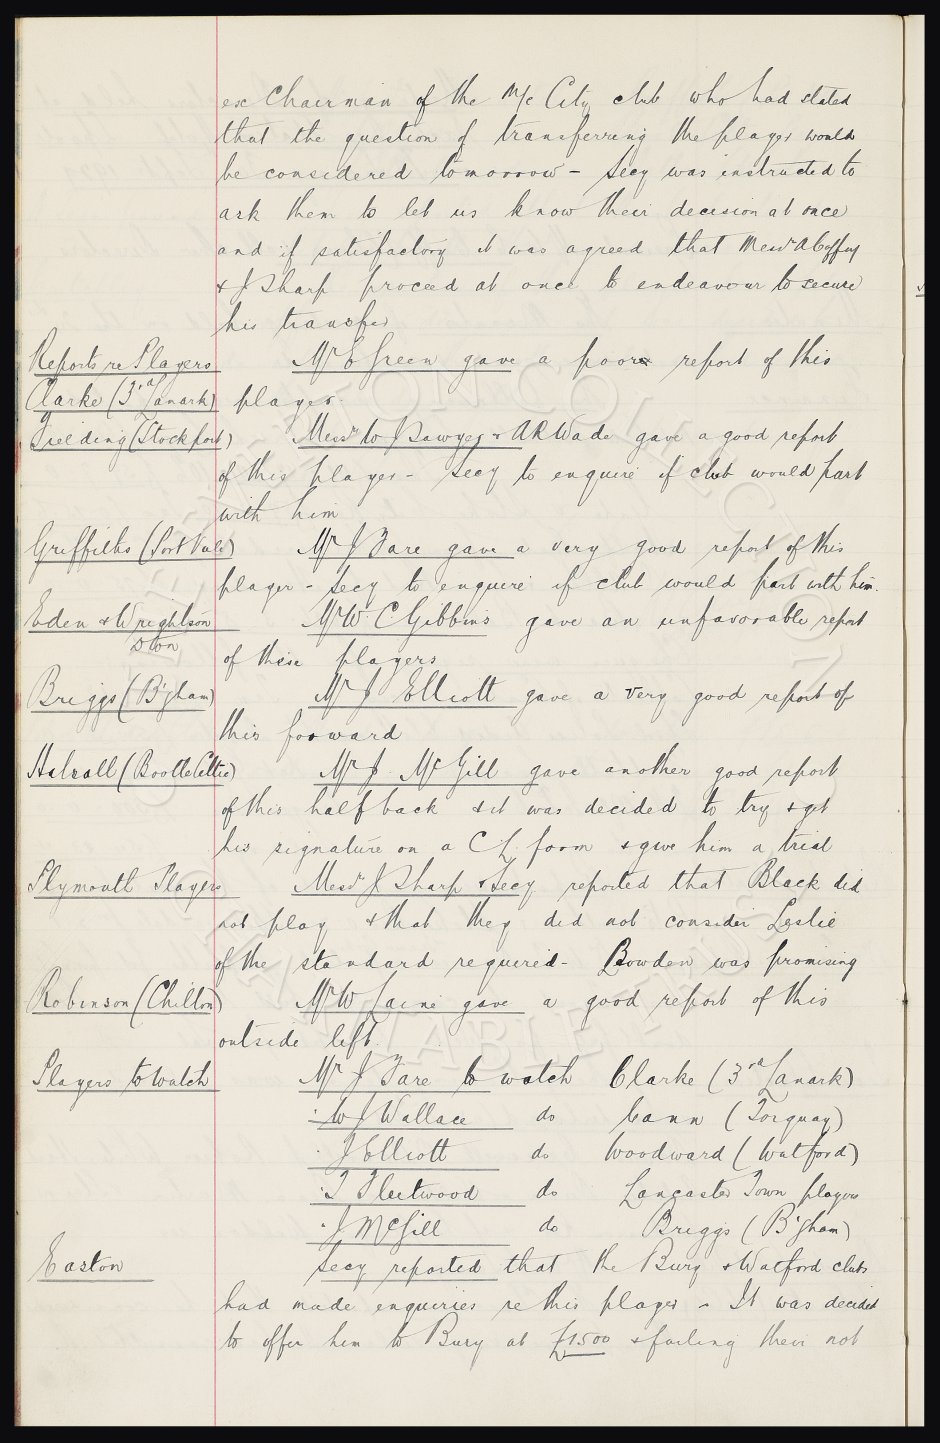 ex Chairman of the M/c City club who had stated
that the question of transferring the player would
be considered tomorrow - Secy was instructed to
ask them to let us know their decision at once
and if satisfactory it was agreed that Messrs A Coffey
& J Sharp proceed at once to endeavour to secure
his transfer
Reports re Players Mr E Green gave a poor report of this
Clarke (3rd Lanark) player.
Fielding (Stockport) Messrs W J Sawyer & A R Wade gave a good report
of this player - Secy to enquire if club would part
with him
Griffiths (Port Vale) Mr J Fare gave a very good report of this
player - Secy to enquire if club would part with him.
Eden & Wrightson Mr W. C Gibbins gave an unfavorable report
of these players
Briggs (B'gham) Mr J Elliott gave a very good report of
this forward
Halsall (Bootle Celtic) Mr J. McGill gave another good report
of this half back & it was decided to try & get
his signature on a C.L. form & give him a trial
Plymouth Players Messrs J Sharp & Secy reported that Black did
not play & that they did not consider Leslie
of the standard required - Bowden was promising
Robinson (Chilton) Mr W Laine gave a good report of this
outside left.
Players to watch Mr J Fare to watch Clarke (3rd Lanark)
" W J Wallace do Cann (Torquay)
" J Elliott do Woodward (Watford)
" T Fleetwood do Lancaster Town players
" J McGill do Briggs (B'gham)
Easton Secy reported that the Bury & Watford clubs
had made enquiries re this player - It was decided
to offer him to Bury at £1500 & failing their not